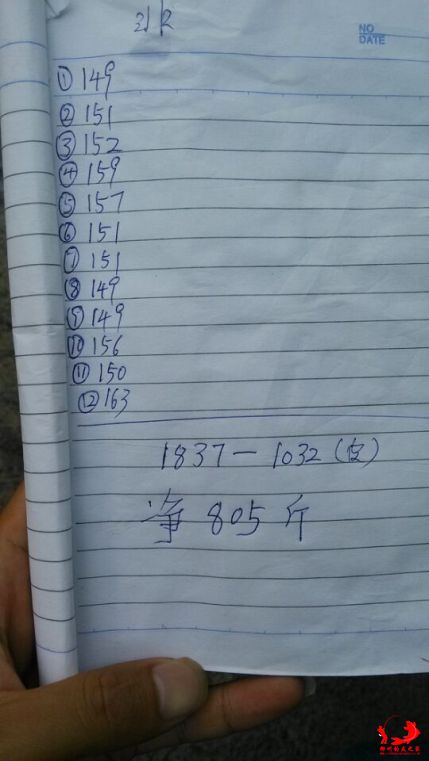 NO
DATE
① 149
② 151
③ 152
④ 159
⑤ 157
⑥ 151
⑦ 151
⑧ 149
⑨ 149
⑩ 156
⑪ 150
⑫ 163
1837 - 1032 (皮)
净 805 斤